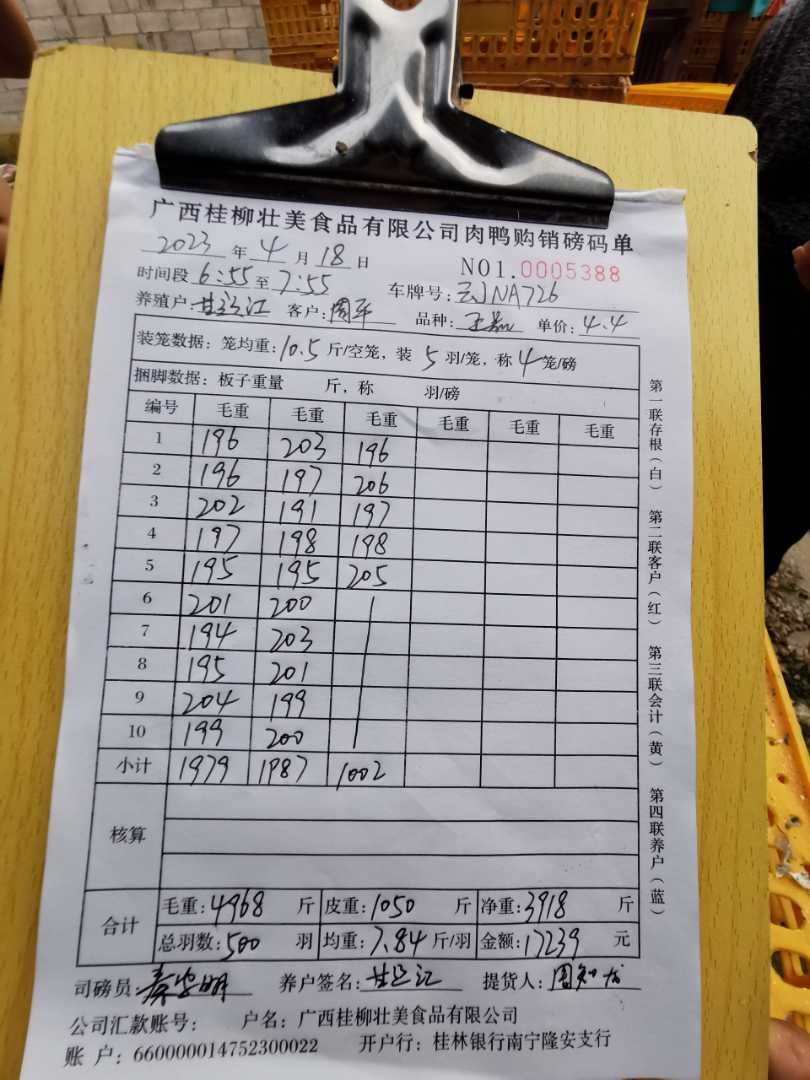 广西桂柳壮美食品有限公司肉鸭购销磅码单
2023 年 4 月 18 日 NO1.0005388
时间段 6:55 至 7:55 车牌号: NA726
养殖户: 甘立江 客户: 周平 品种: 单价: 4.4
装笼数据: 笼均重: 10.5 斤/空笼, 装 5 羽/笼, 称 4 笼/磅
捆脚数据: 板子重量 斤, 称 羽/磅
编号 毛重 毛重 毛重 毛重 毛重 毛重
1 196 203 196
2 196 197 206
3 202 191 197
4 197 198 198
5 195 195 205
6 201 200
7 194 203
8 195 201
9 204 199
10 199 200
小计 1979 1987 1002
核算
合计
毛重: 4968 斤 皮重: 1050 斤 净重: 3918 斤
总羽数: 500 羽 均重: 7.84 斤/羽 金额: 17239 元
司磅员: 养户签名: 甘立江 提货人:
公司汇款账号: 户名: 广西桂柳壮美食品有限公司
账 户: 660000014752300022 开户行: 桂林银行南宁隆安支行
第一联存根(白) 第二联客户(红) 第三联会计(黄) 第四联养户(蓝)